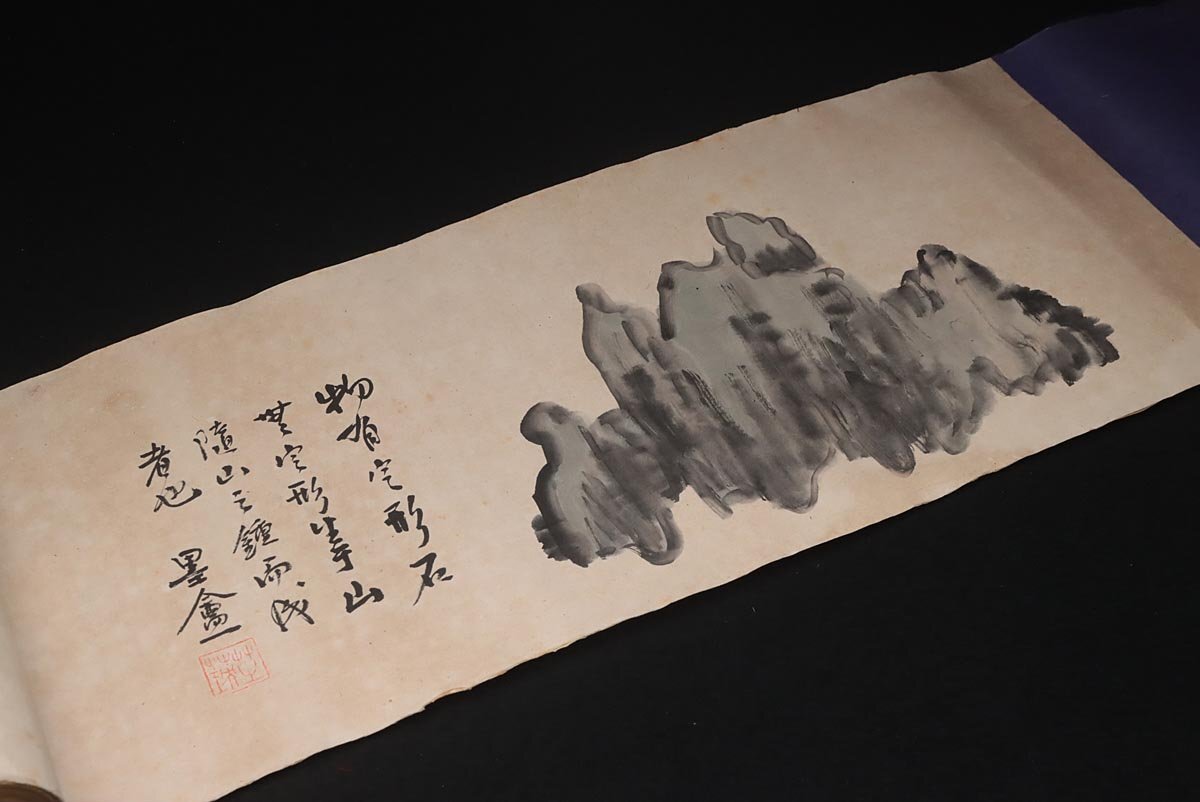 物有定形石
無定形 山
隨山之鍾而成
者也 墨盦